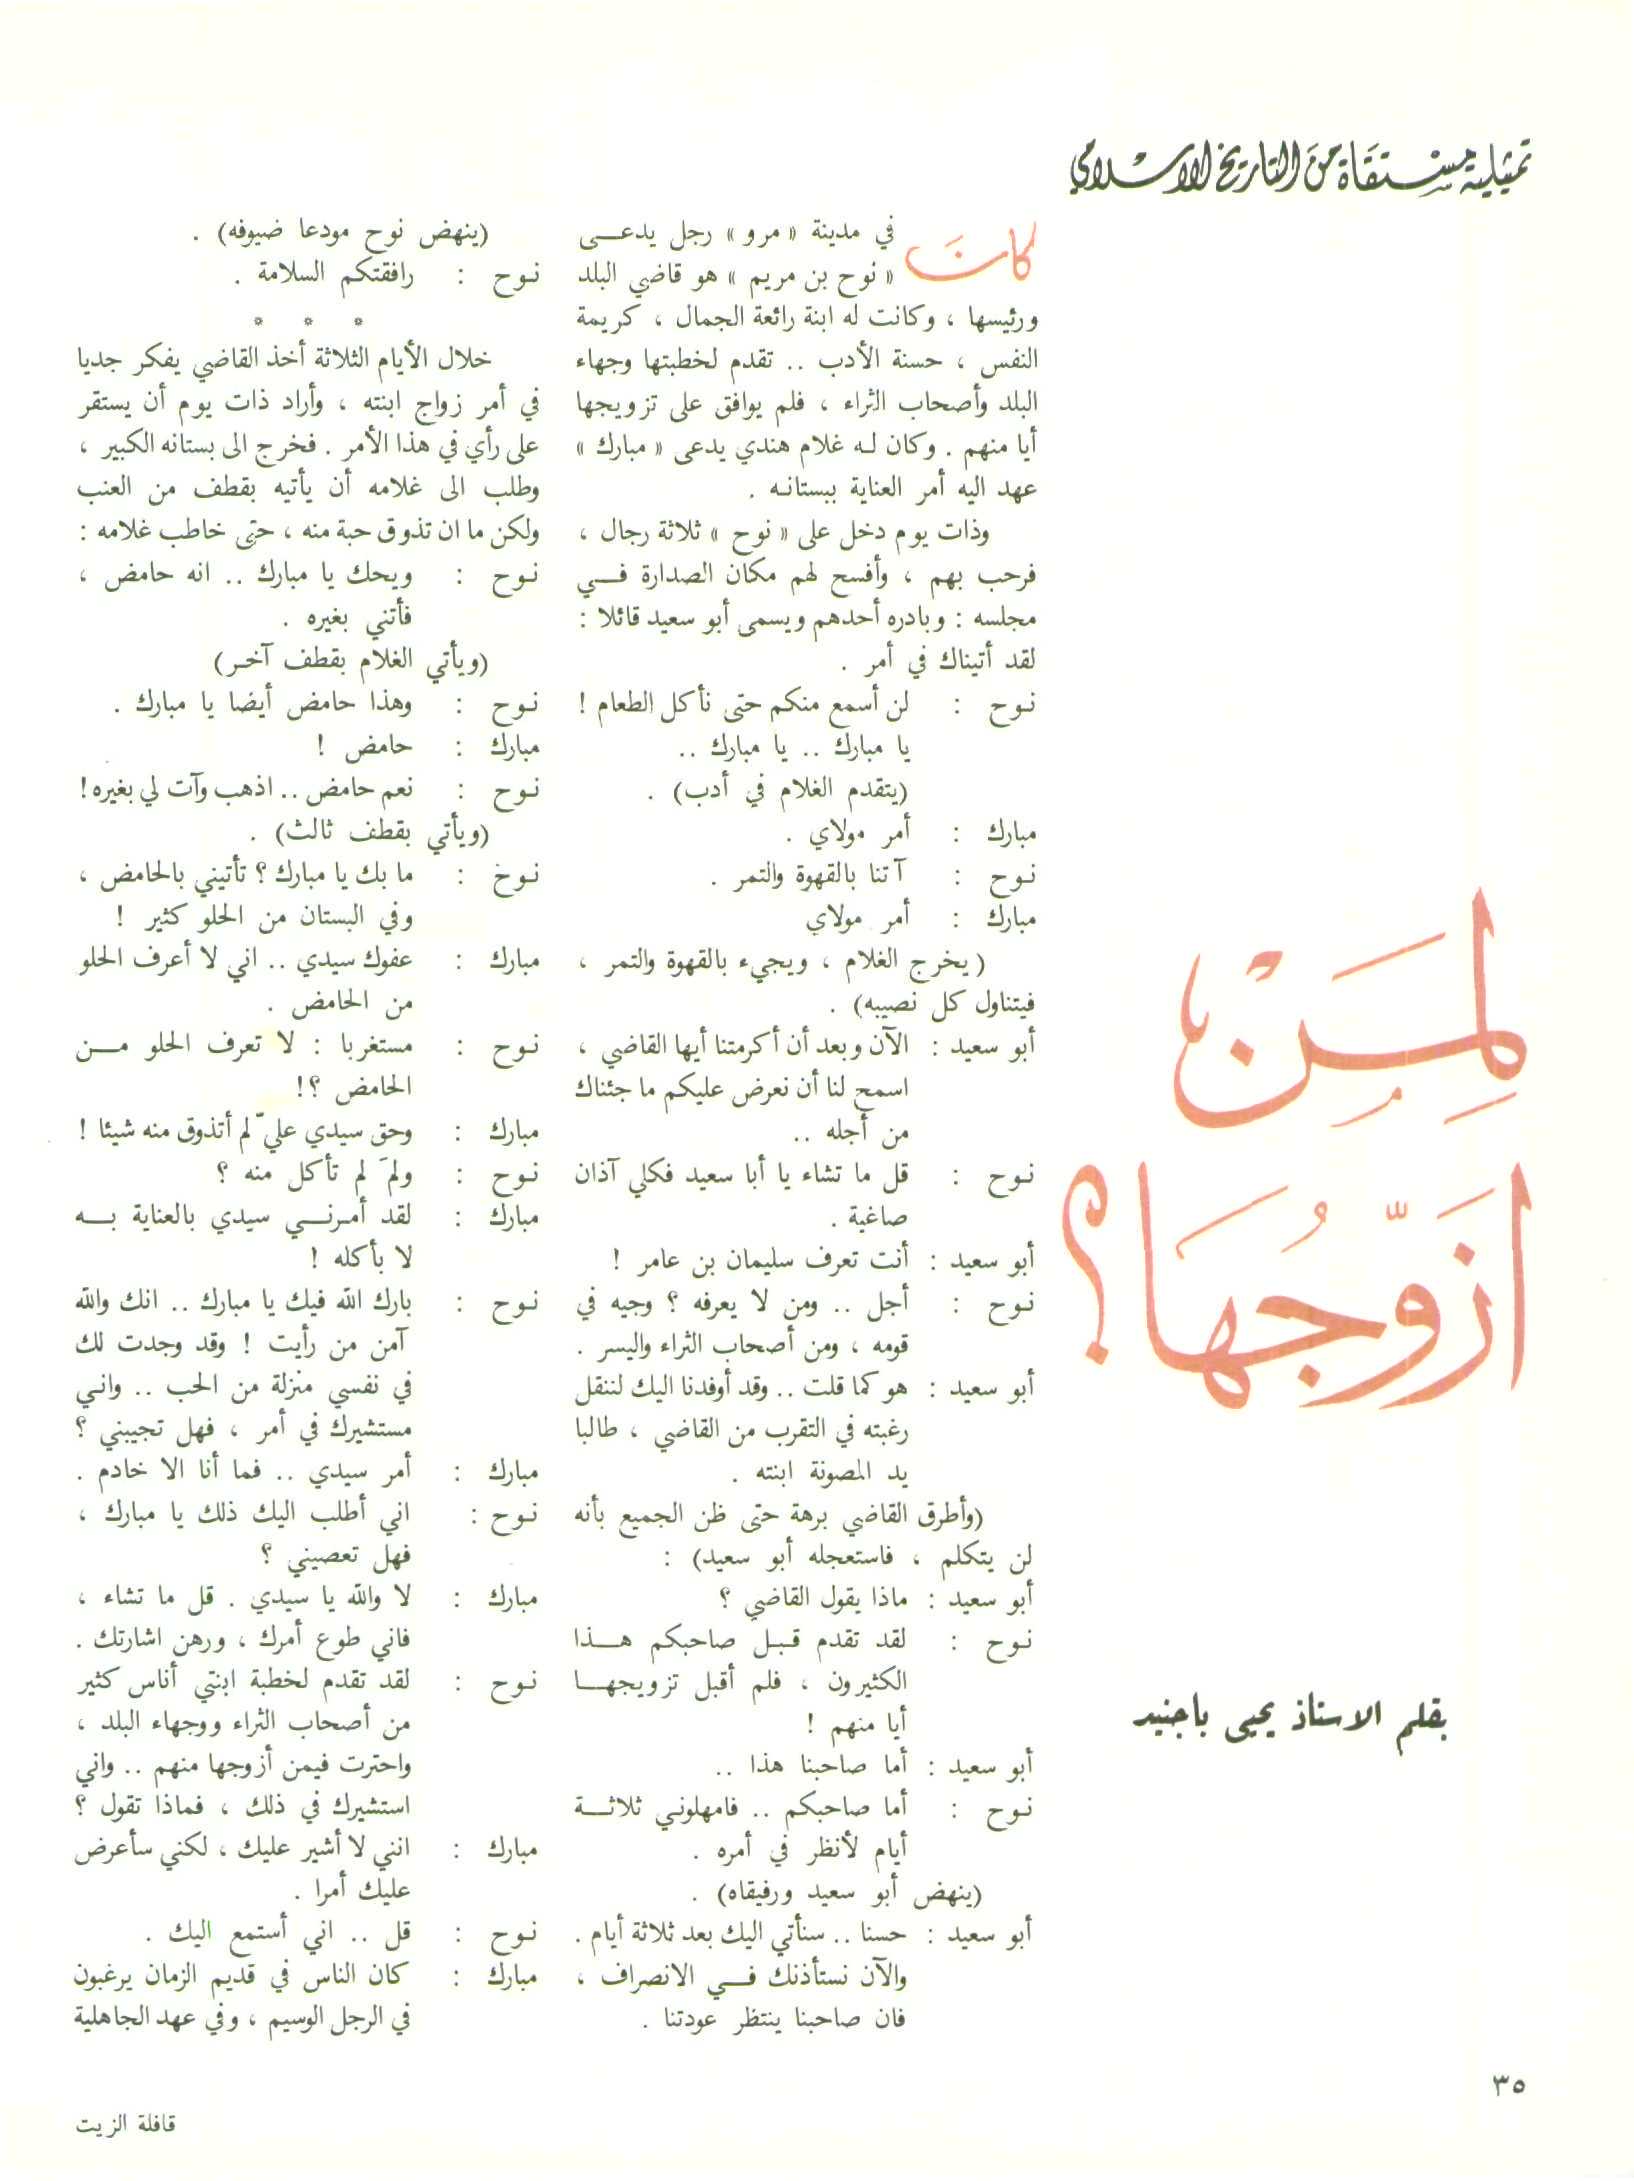 تمثيلية مستقاة من التاريخ الاسلامي
لمن
ازوّجها؟
بقلم الاستاذ يحيى باجنيد
كان في مدينة « مرو » رجل يدعى
« نوح بن مريم » هو قاضي البلد
ورئيسها ، وكانت له ابنة رائعة الجمال ، كريمة
النفس ، حسنة الأدب .. تقدم لخطبتها وجهاء
البلد وأصحاب الثراء ، فلم يوافق على تزويجها
أيا منهم . وكان له غلام هندي يدعى « مبارك »
عهد اليه أمر العناية ببستانه .
وذات يوم دخل على « نوح » ثلاثة رجال ،
فرحب بهم ، وأفسح لهم مكان الصدارة في
مجلسه : وبادره أحدهم ويسمى أبو سعيد قائلا :
لقد أتيناك في أمر .
نوح : لن أسمع منكم حتى نأكل الطعام !
يا مبارك .. يا مبارك ..
(يتقدم الغلام في أدب) .
مبارك : أمر مولاي .
نوح : آتنا بالقهوة والتمر .
مبارك : أمر مولاي
( يخرج الغلام ، ويجيء بالقهوة والتمر ،
فيتناول كل نصيبه) .
أبو سعيد : الآن وبعد أن أكرمتنا أيها القاضي ،
اسمح لنا أن نعرض عليكم ما جئناك
من أجله ..
نوح : قل ما تشاء يا أبا سعيد فكلي آذان
صاغية .
أبو سعيد : أنت تعرف سليمان بن عامر !
نوح : أجل .. ومن لا يعرفه ؟ وجيه في
قومه ، ومن أصحاب الثراء واليسر .
أبو سعيد : هو كما قلت .. وقد أوفدنا اليك لننقل
رغبته في التقرب من القاضي ، طالبا
يد المصونة ابنته .
(وأطرق القاضي برهة حتى ظن الجميع بأنه
لن يتكلم ، فاستعجله أبو سعيد) :
أبو سعيد : ماذا يقول القاضي ؟
نوح : لقد تقدم قبل صاحبكم هذا
الكثيرون ، فلم أقبل تزويجها
أيا منهم !
أبو سعيد : أما صاحبنا هذا ..
نوح : أما صاحبكم .. فامهلوني ثلاثة
أيام لأنظر في أمره .
(ينهض أبو سعيد ورفيقاه) .
أبو سعيد : حسنا .. سنأتي اليك بعد ثلاثة أيام .
والآن نستأذنك في الانصراف ،
فان صاحبنا ينتظر عودتنا .
(ينهض نوح مودعا ضيوفه) .
نوح : رافقتكم السلامة .
* * *
خلال الأيام الثلاثة أخذ القاضي يفكر جديا
في أمر زواج ابنته ، وأراد ذات يوم أن يستقر
على رأي في هذا الأمر . فخرج الى بستانه الكبير ،
وطلب الى غلامه أن يأتيه بقطف من العنب
ولكن ما ان تذوق حبة منه ، حتى خاطب غلامه :
نوح : ويحك يا مبارك .. انه حامض ،
فأتني بغيره .
(ويأتي الغلام بقطف آخر)
نوح : وهذا حامض أيضا يا مبارك .
مبارك : حامض !
نوح : نعم حامض .. اذهب وآت لي بغيره !
(ويأتي بقطف ثالث) .
نوخ : ما بك يا مبارك ؟ تأتيني بالحامض ،
وفي البستان من الحلو كثير !
مبارك : عفوك سيدي .. اني لا أعرف الحلو
من الحامض .
نوح : مستغربا : لا تعرف الحلو من
الحامض ؟!
مبارك : وحق سيدي عليّ لم أتذوق منه شيئا !
نوح : ولمَ لم تأكل منه ؟
مبارك : لقد أمرني سيدي بالعناية به
لا بأكله !
نوح : بارك الله فيك يا مبارك .. انك والله
آمن من رأيت ! وقد وجدت لك
في نفسي منزلة من الحب .. واني
مستشيرك في أمر ، فهل تجيبني ؟
مبارك : أمر سيدي .. فما أنا الا خادم .
نوح : اني أطلب اليك ذلك يا مبارك ،
فهل تعصيني ؟
مبارك : لا والله يا سيدي . قل ما تشاء ،
فاني طوع أمرك ، ورهن اشارتك .
نوح : لقد تقدم لخطبة ابنتي أناس كثير
من أصحاب الثراء ووجهاء البلد ،
واحترت فيمن أزوجها منهم .. واني
استشيرك في ذلك ، فماذا تقول ؟
مبارك : انني لا أشير عليك ، لكني سأعرض
عليك أمرا .
نوح : قل .. اني أستمع اليك .
مبارك : كان الناس في قديم الزمان يرغبون
في الرجل الوسيم ، وفي عهد الجاهلية
٣٥
قافلة الزيت